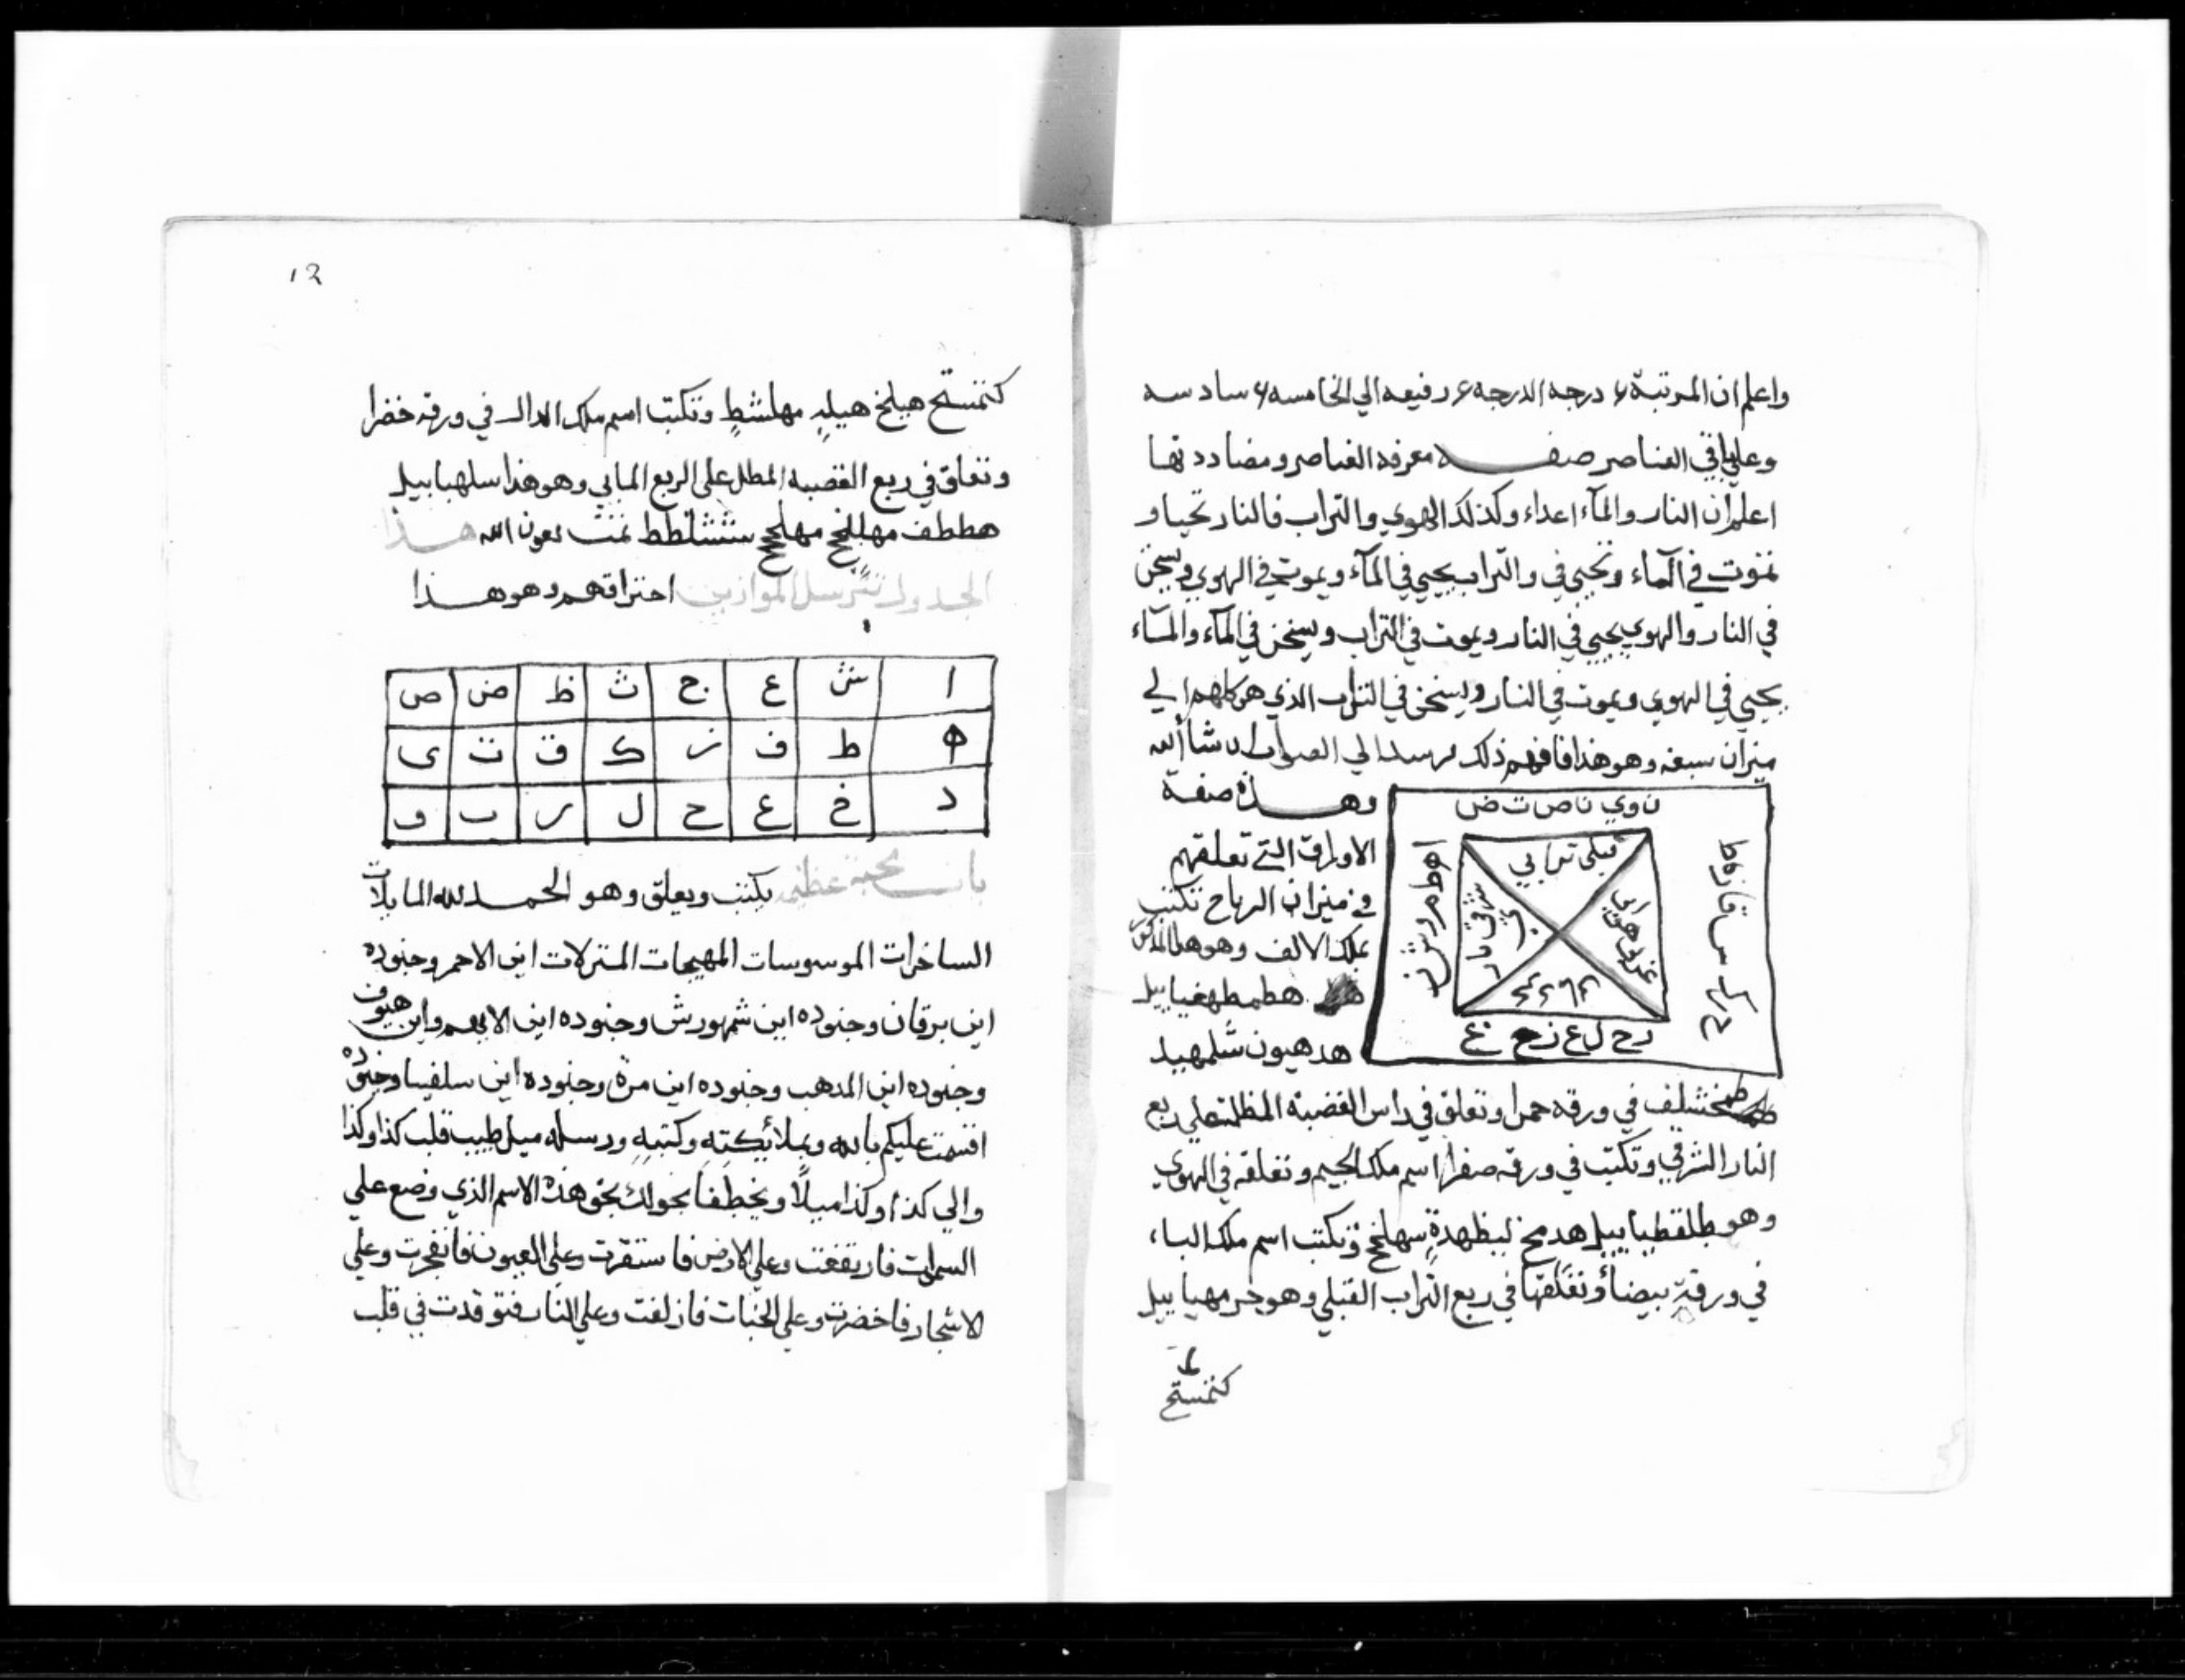 واعلم ان المرتبة ۶ درجه الدرجه ۶ دفيعه الي الخامسه ۶ سادسه
وعلي باقي العناصر صفه معرفه العناصر ومضاددتها
اعلم ان النار والمآء اعداء وكذلك الهوي والتراب فالنار تحيا و
تموت في المآء وتحيي في والتراب يحيي في المآء ويموت في الهوي ويسخن
في النار والهوي يحيي في النار ويموت في التراب ويسخن في المآء والمآء
يحيي في الهوي ويموت في النار ويسخن في التراب الذي هو كلهم الي
ميزان سبعه وهو هذا فافهم ذلك ترسد الي الصواب ان شاالله
وهذه صفة
الاوراق التي تعلقهم
في ميزان الرياح تكتب
ملك الالف وهو هذا
هطمطهغياييل
هدهيون شلمهيد
في ورقه حمرا وتعلق في راس القضبة المظلة علي ربع
النار الشرقي وتكتب في ورقه صفرا اسم ملك الجيم وتعلقه في الهوي
وهو طلقطياييل هدمخ ليظهدة سهلخج وتكتب اسم ملك الباء
في ورقة بيضأ وتعلقها في ربع التراب القبلي وهو جرمهياييل
كنمستج
ن وي ن ص ت ض
قبلي ترابي
د ح ل ع ز خ غ
12
كنمستج هيلخ هيلد مهلشط وتكتب اسم ملك الدال في ورقه خضرا
وتعلق في ربع القصبه المطل علي الربع المايي وهو هذا سلهياييل
هططف مهللخج مهلجج ششلطط تمت بعون الله هذا
الجدول ترسل الموازين احتراقهم وهو هذا
ا ش ع ج ث ظ ض ص
ه ط ف ز ك ق ت ى
د خ ع ح ل ر ب و
باب محبة عظيمه يكتب ويعلق وهو الحمد لله المايلات
الساخرات الموسوسات المهيجات المتزلات اين الاحمر وجنوده
اين برقان وجنوده اين شمهورش وجنوده اين الابيض واين هيوف
وجنوده اين المدهب وجنوده اين مرة وجنوده اين سلفيا وجنوده
اقسمت عليكم بالله وبملائيكته وكتبه ورسله ميل طيب قلب كذا وكذا
والي كذا وكذا ميلًا ويخطفا بحولك بحق هذه الاسم الذي وضع علي
السموات فارتفعت وعلي الارض فاستقرت وعلي العيون فانفجرت وعلي
الاشجار فاخضرت وعلي الجنات فازلفت وعلي النار فتوقدت في قلب